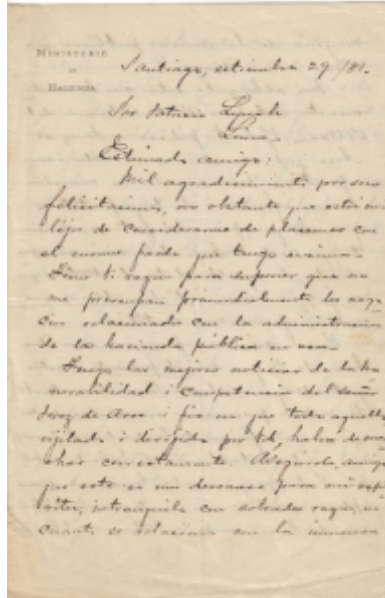 MINISTERIO
DE
HACIENDA
Santiago, setiembre 29/81.
Sor Patricio Lynch
Lima.
Estimado amigo:
Mil agradecimientos por sus
felicitaciones, no obstante que estoi mui
léjos de considerarme de plácemes con
el enorme peso que tengo encima.
Tiene Ud. razon para suponer que no
me preocupan primordialmente los nego
cios relacionados con la administracion
de la hacienda pública en esa.
Tengo las mejores noticias de la ho
norabilidad i competencia del señor
Perez de Arce i fío en que todo aquello,
vijilado i dirijido por Ud, habrá de mar
char correctamente. Asegúrole, amigo,
que este es un descanso para mi espí
ritu, intranquilo con sobrada razon, en
cuanto se relaciona con la inmensa